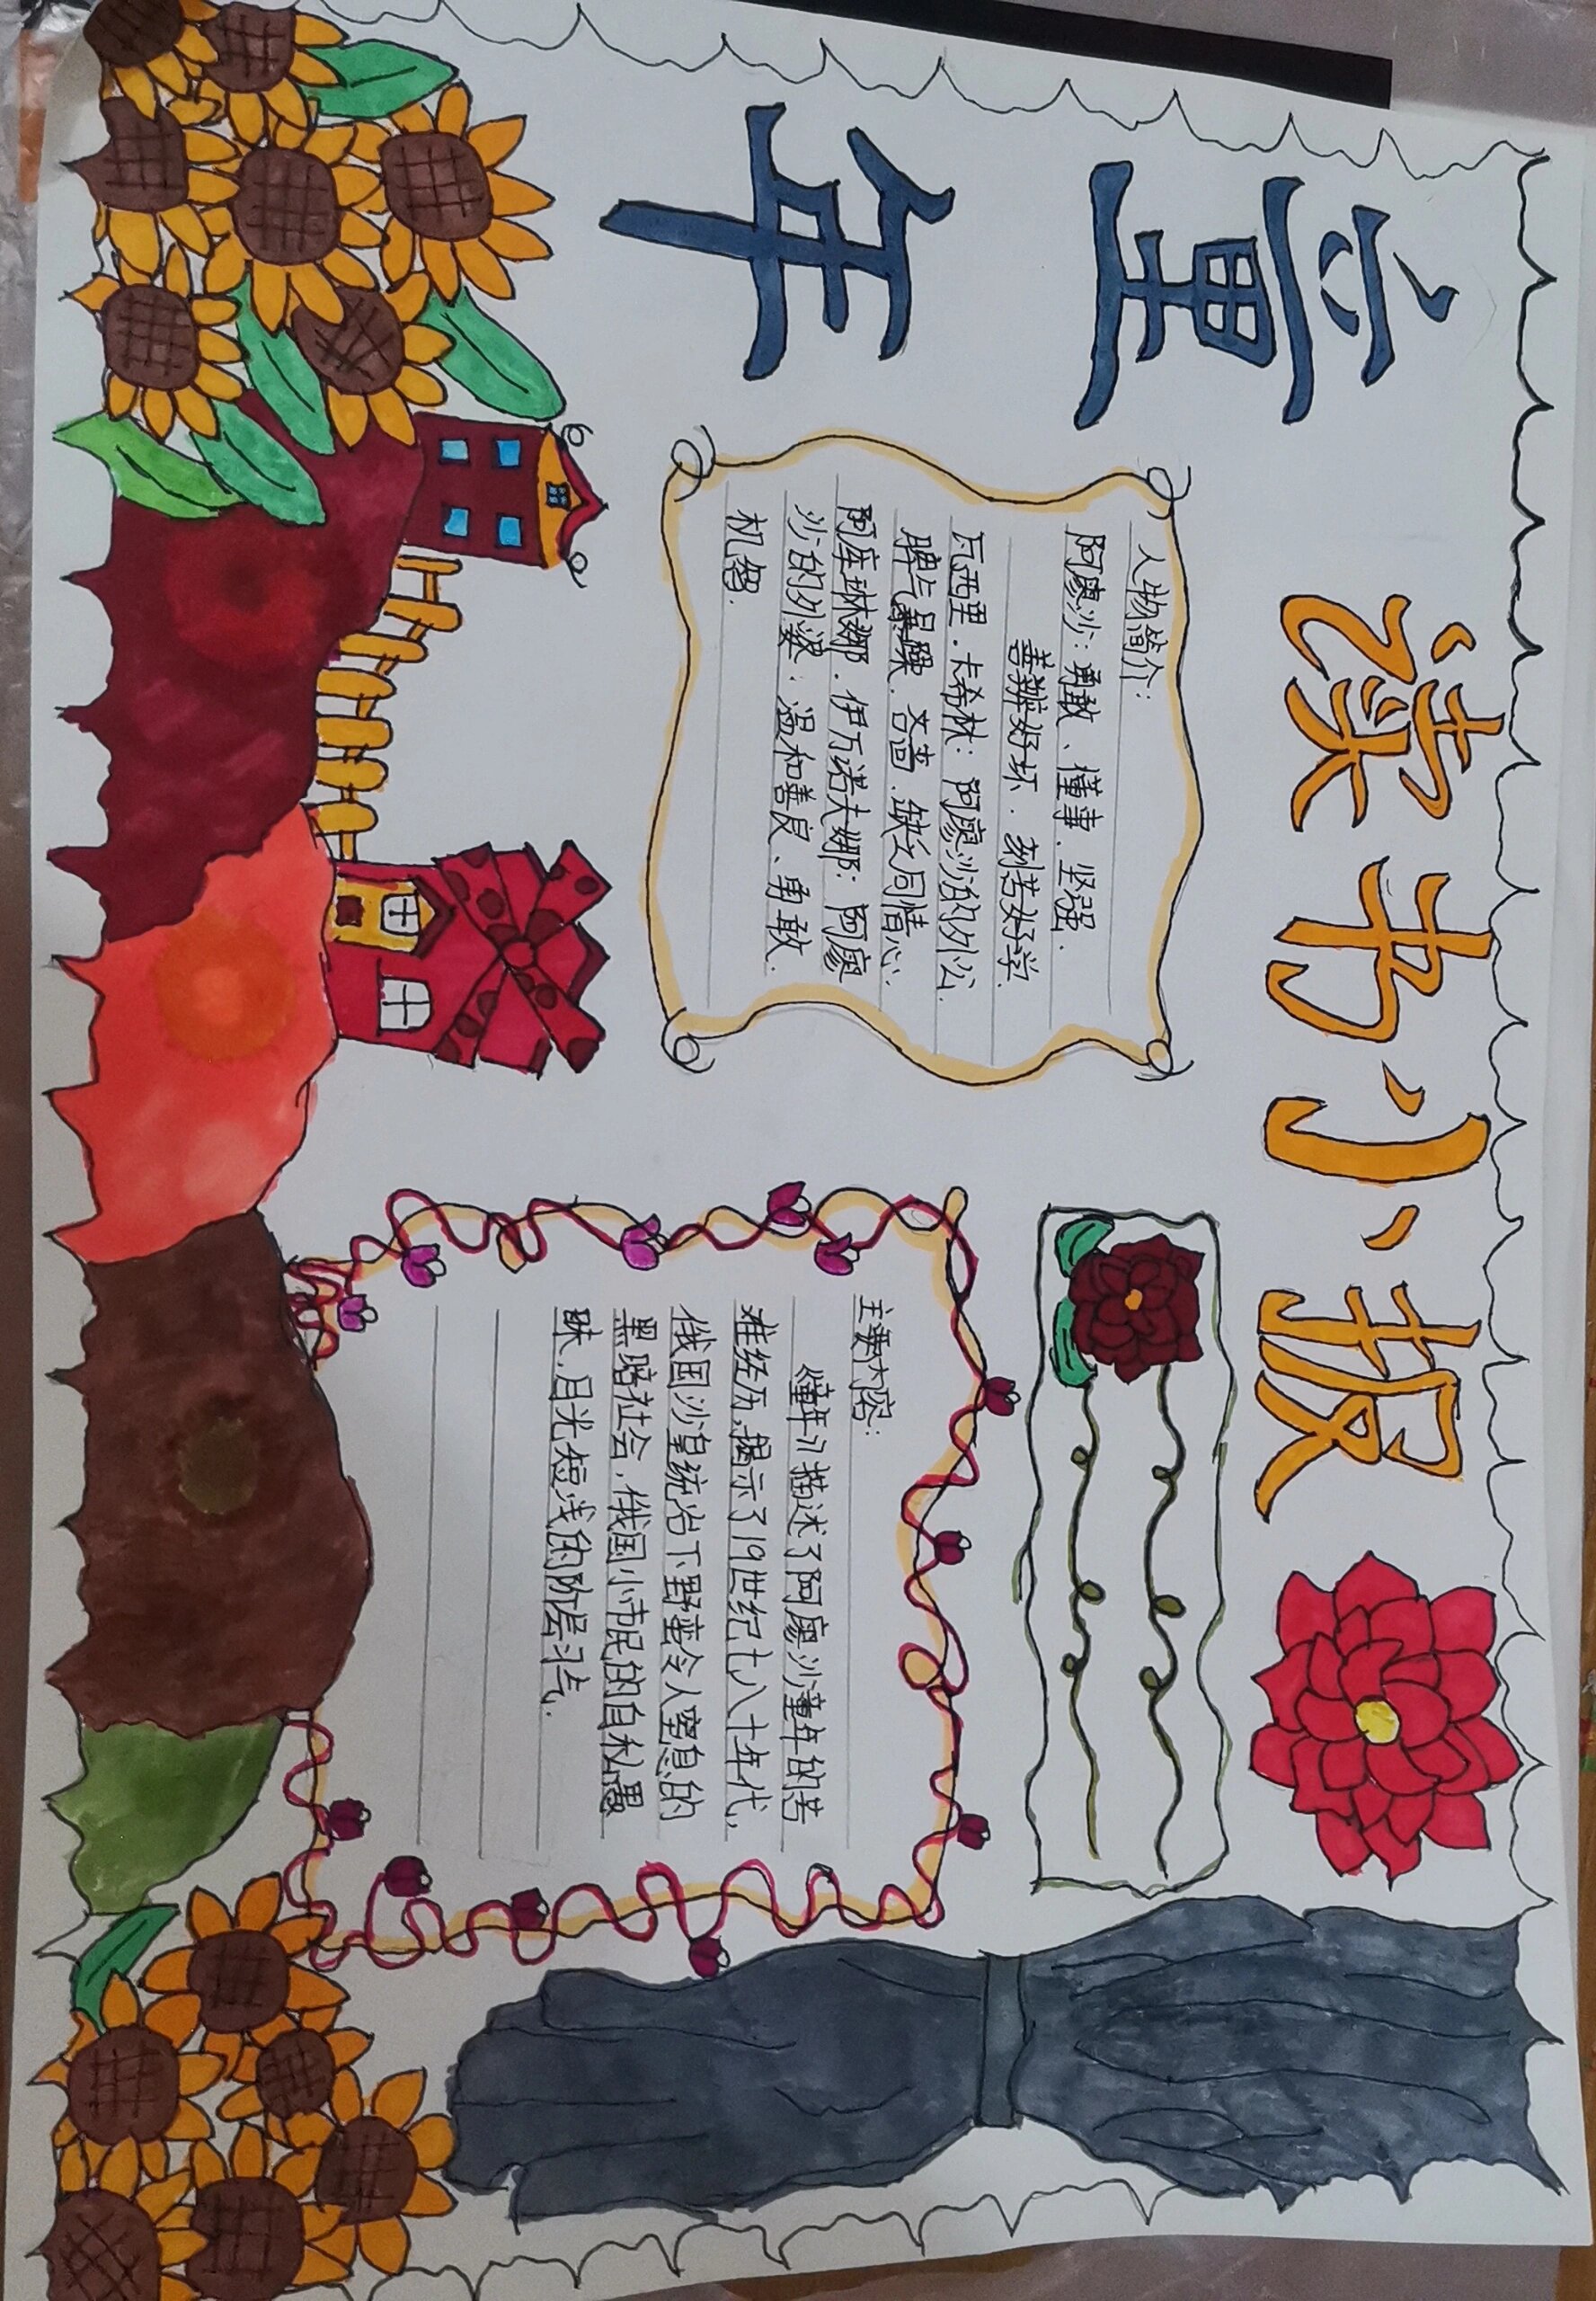 读书小报
童年
人物简介:
阿廖沙:勇敢、懂事、坚强.
善辨好坏.刻苦好学.
瓦西里.卡希林:阿廖沙的外公.
脾气暴躁.吝啬.缺乏同情心.
阿库琳娜.伊万诺夫娜:阿廖
沙的外婆:温和善良、勇敢.
机智.
主要内容:
《童年》描述了阿廖沙童年的苦
难经历,揭示了19世纪七八十年代,
俄国沙皇统治下野蛮令人窒息的
黑暗社会,俄国小市民的自私愚
昧,目光短浅的阶层习气.